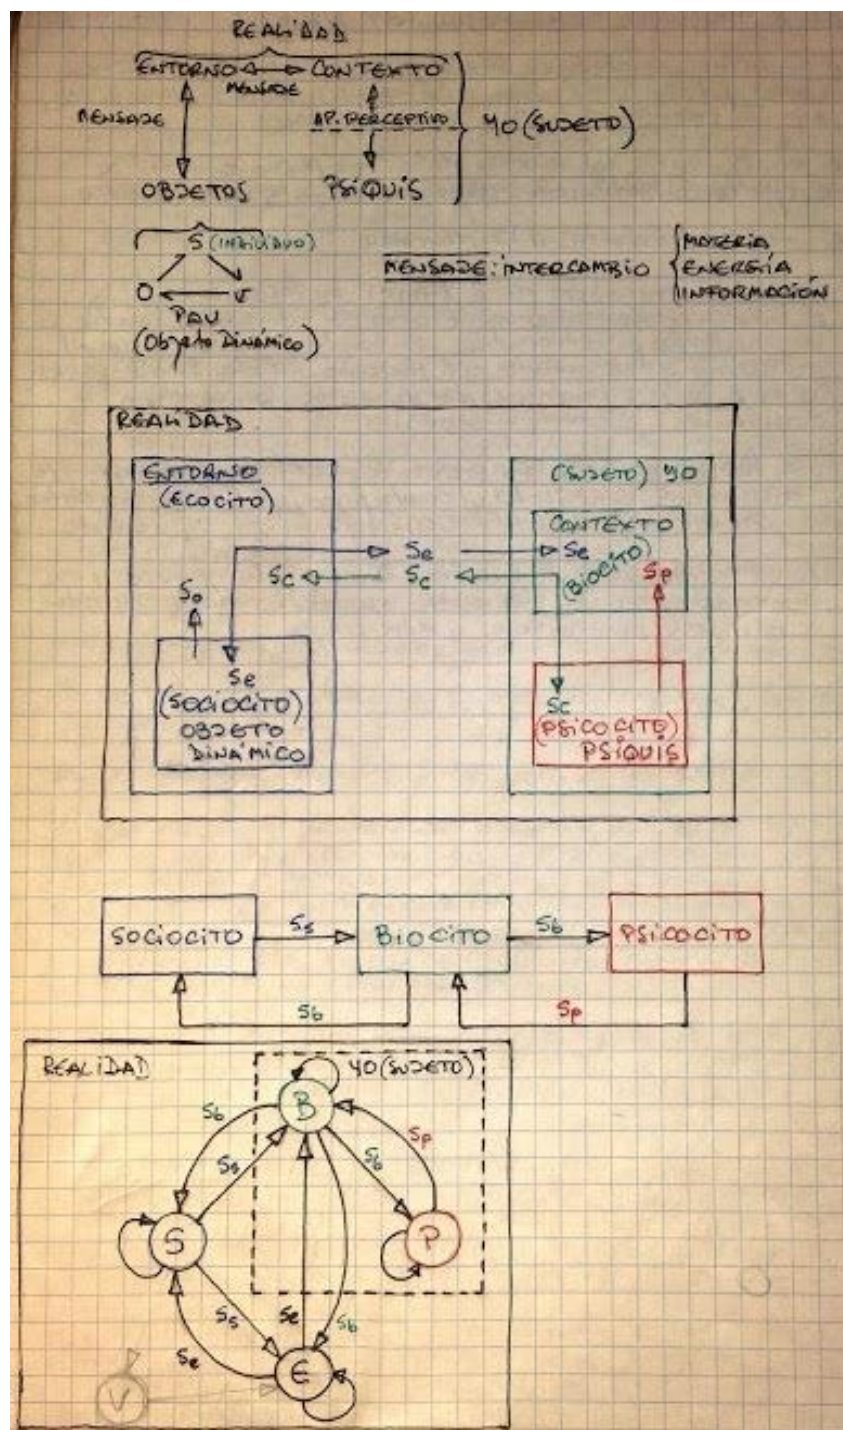 REALIDAD
ENTORNO CONTEXTO
MENSAJE
MENSAJE AP. PERCEPTIVO YO (SUJETO)
OBJETOS PSIQUIS
S (INDIVIDUO)
O V
PAV
(Objeto Dinámico)
MENSAJE: INTERCAMBIO
MATERIA
ENERGÍA
INFORMACIÓN
REALIDAD
ENTORNO
(ECOCITO)
(SUJETO) YO
CONTEXTO
(BIOCITO)
Se Se
Sc Sc
Sp
So
Se
(SOCIOCITO)
OBJETO
DINÁMICO
Sc
(PSICOCITO)
PSIQUIS
SOCIOCITO Ss BIOCITO Sb PSICOCITO
Sb Sp
REALIDAD YO (SUJETO)
B
Sb Sp
Ss Sb
S P
Ss Se Sb
Se
E
V